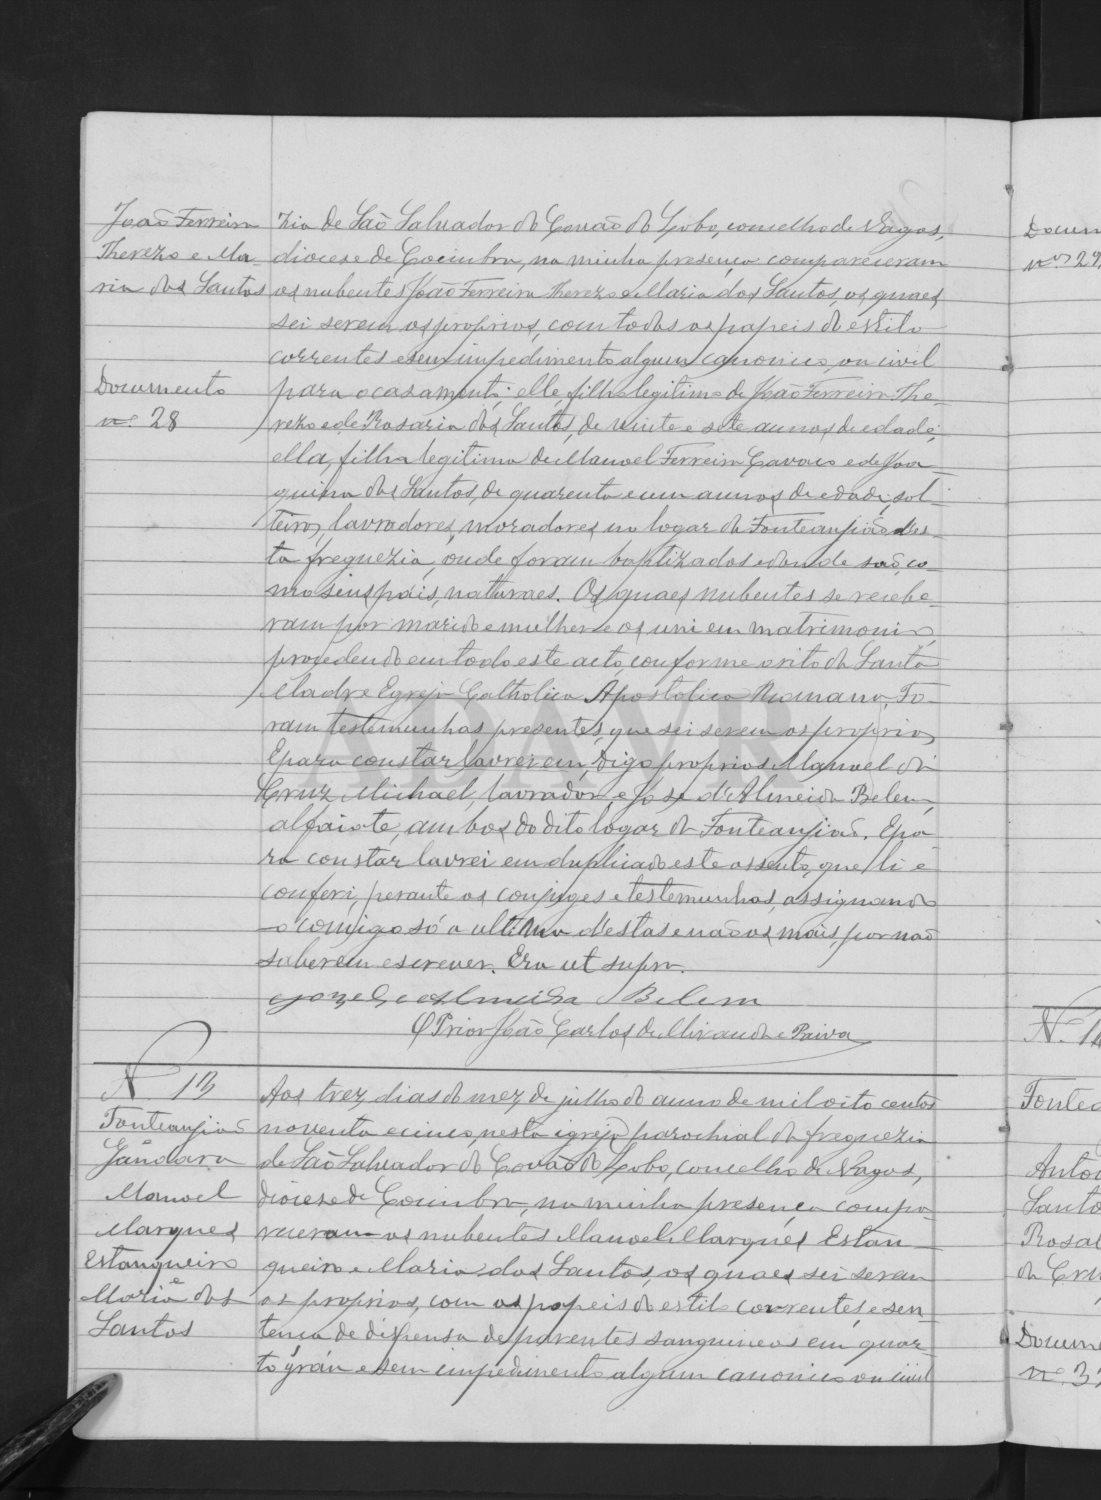 João Ferreira
Therezo e Ma-
ria dos Santos
Documento
nº 28
zia de São Salvador do Covão do Lobo, concelho de Vagos,
diocese de Coimbra, na minha presença compareceram
os nubentes João Ferreira Therezo e Maria dos Santos, os quaes
sei serem os proprios, com todos os papeis do estilo
correntes e sem impedimento algum canonico, ou civil
para o casamento; elle, filho legitimo de João Ferreira The-
rezo e de Rosaria dos Santos, de vinte e sete annos de edade;
ella, filha legitima de Manoel Ferreira Cavaco e de Joa-
quina dos Santos, de quarenta e um annos de edade, sol-
teiros, lavradores, moradores no logar de Fonteanjião, des-
ta freguezia, onde foram baptizados e donde são, co-
mo seus pais, naturaes. Os quaes nubentes se recebe-
ram por marido e mulher e os uni em matrimonio,
procedendo em todo este acto, conforme o rito da Santa
Madre Egreja Catholica Apostolica Romana. Fo-
ram testemunhas presentes, que sei serem os proprios
E para constar lavrei em, digo proprios Manoel da
Cruz Michael, lavrador, e José d'Almeida Belem,
alfaiate, ambos do dito logar de Fonteanjião. E pa-
ra constar lavrei em duplicado este assento, que li e
conferi, perante os conjuges e testemunhas, assignando
-o comigo só a ultima d'estas e não os mais, por não
saberem escrever. Era ut supra.
Joze de Almeida Belem
O Prior João Carlos de Miranda e Paiva
Nº 13
Fonteanjião
Gandara
Manoel
Marques
Estangueiro
e
Maria dos
Santos
Aos trez dias do mez de julho do anno de mil oito centos
noventa e cinco, nesta igreja parochial da freguezia
de São Salvador do Covão do Lobo, concelho de Vagos,
diocese de Coimbra, na minha presença compa-
receram os nubentes Manoel Marques Estan-
gueiro e Maria dos Santos, os quaes sei serem
os proprios, com os papeis do estilo correntes, e sen-
tença de dispensa de parentes sanguineos em quar-
to gráu e sem impedimento algum canonico ou civil
Docum
nº 29
Nº 14
Fontea
Anton
Santo
Rosa
da Cru
Docume
nº 3
ADAVR